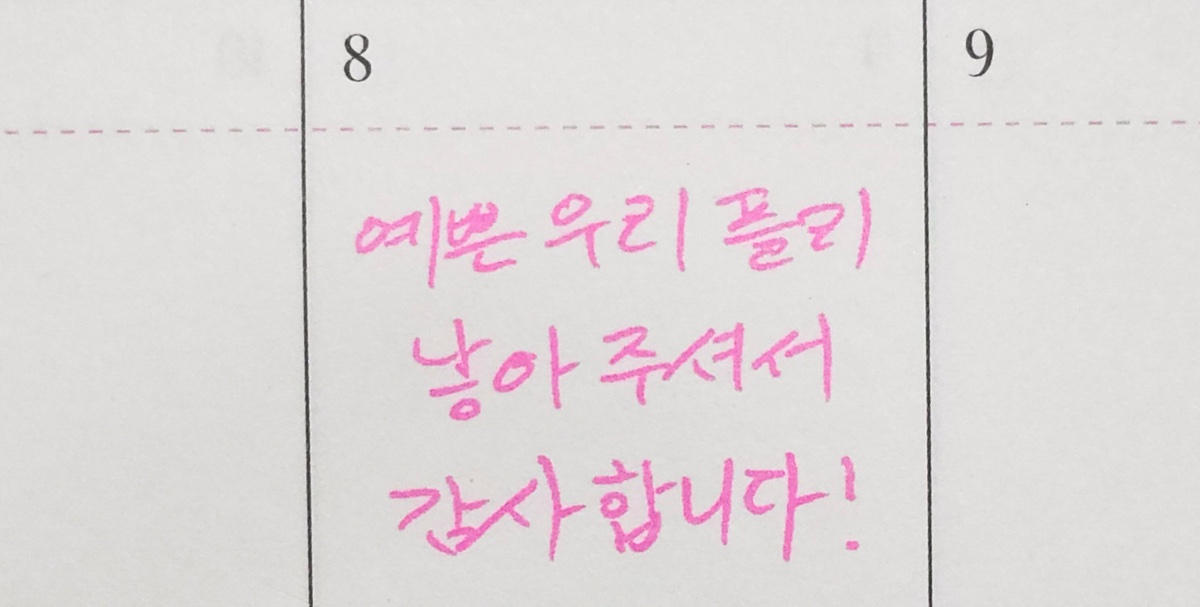 8
9
예쁜 우리 플리
낳아 주셔서
감사합니다!